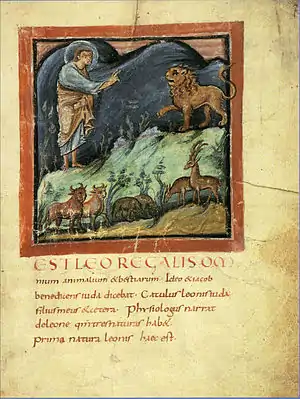 ESTLEO REGALIS OM
nium animalium & bestiarum · Ideo & iacob
benedicens iuda dicebat · Catulus leonis iuda
filius meus & cetera · Physiologus narrat
de leone qm tres naturas hab&
prima natura leonis haec est ·